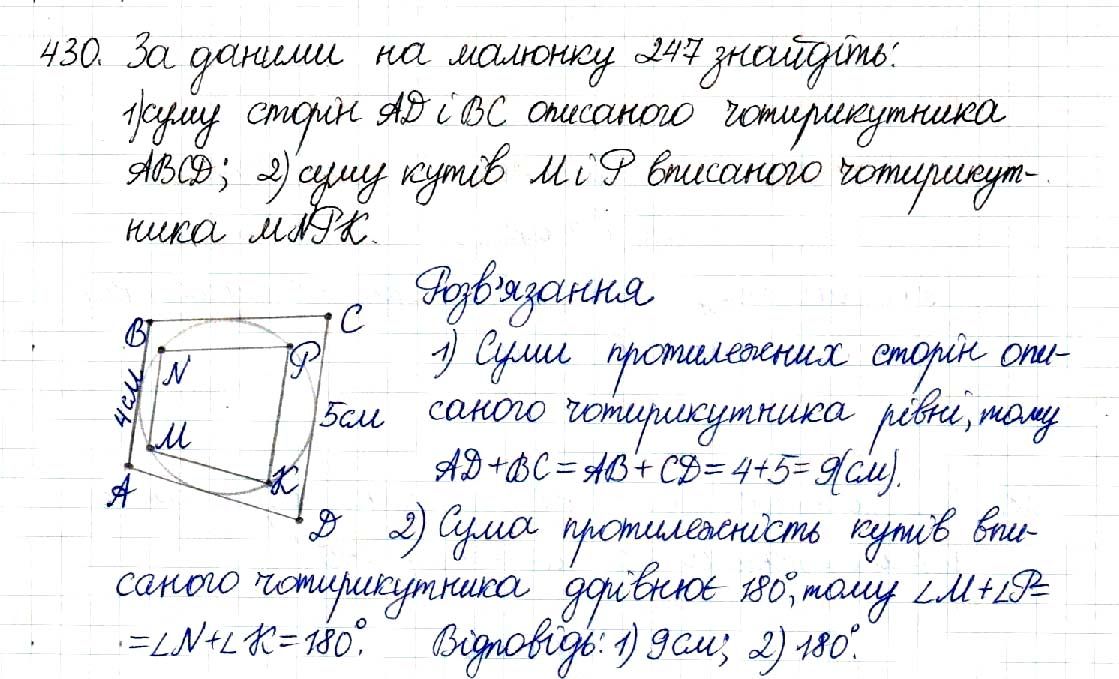 430. За даними на малюнку 247 знайдіть:
1) суму сторін AD і BC описаного чотирикутника
ABCD; 2) суму кутів M і P вписаного чотирикут-
ника MNPK.
Розв'язання
B
C
N
P
4см
5см
M
K
A
D
1) Суми протилежних сторін опи-
саного чотирикутника рівні, тому
AD + BC = AB + CD = 4 + 5 = 9(см).
2) Сума протилежність кутів впи-
саного чотирикутника дорівнює 180°, тому ∠M + ∠P =
= ∠N + ∠K = 180°. Відповідь: 1) 9 см; 2) 180°.